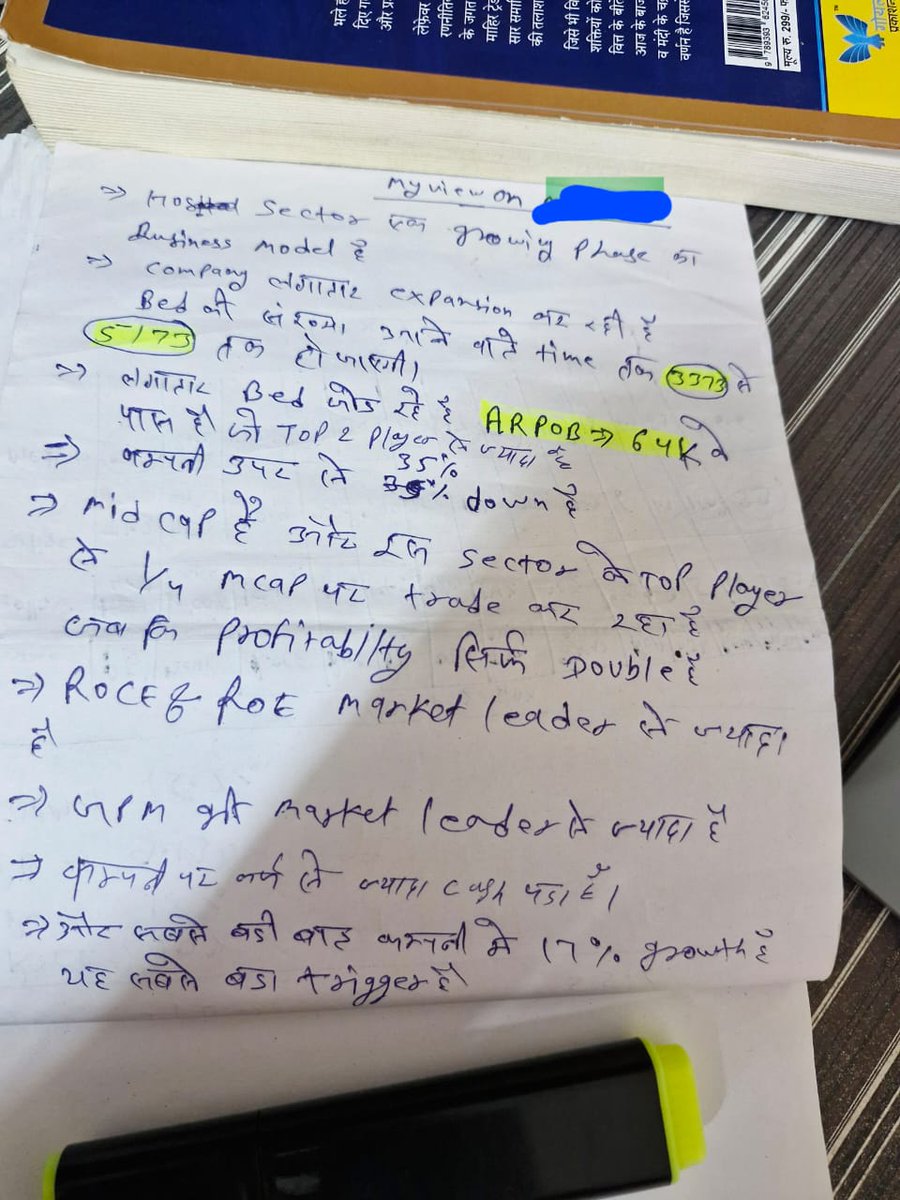 My view on
⇒ Sector एक growing Phase का
Business model है
⇒ Company लगातार expansion कर रही है
Bed की संख्या आने वाले time तक 3373 से
5173 तक हो जाएगी।
⇒ लगातार Bed जोड रहे है ARPOB ⇒ 64K के
पास है जो TOP 2 Player से ज्यादा है
⇒ कम्पनी उपर से 35% down है
⇒ mid cap है और इस Sector के TOP Player
से 1/4 mcap पर trade कर रहा है
जबकि Profitability सिर्फ Double है
⇒ ROCE & ROE market leader से ज्यादा
है
⇒ भी market leader से ज्यादा है
⇒ कम्पनी पर कर्ज से ज्यादा cash पडा है।
⇒ और सबसे बडी बात कम्पनी मे 17% growth है
यह सबसे बडा trigger है
मूल्य रु. 299/-